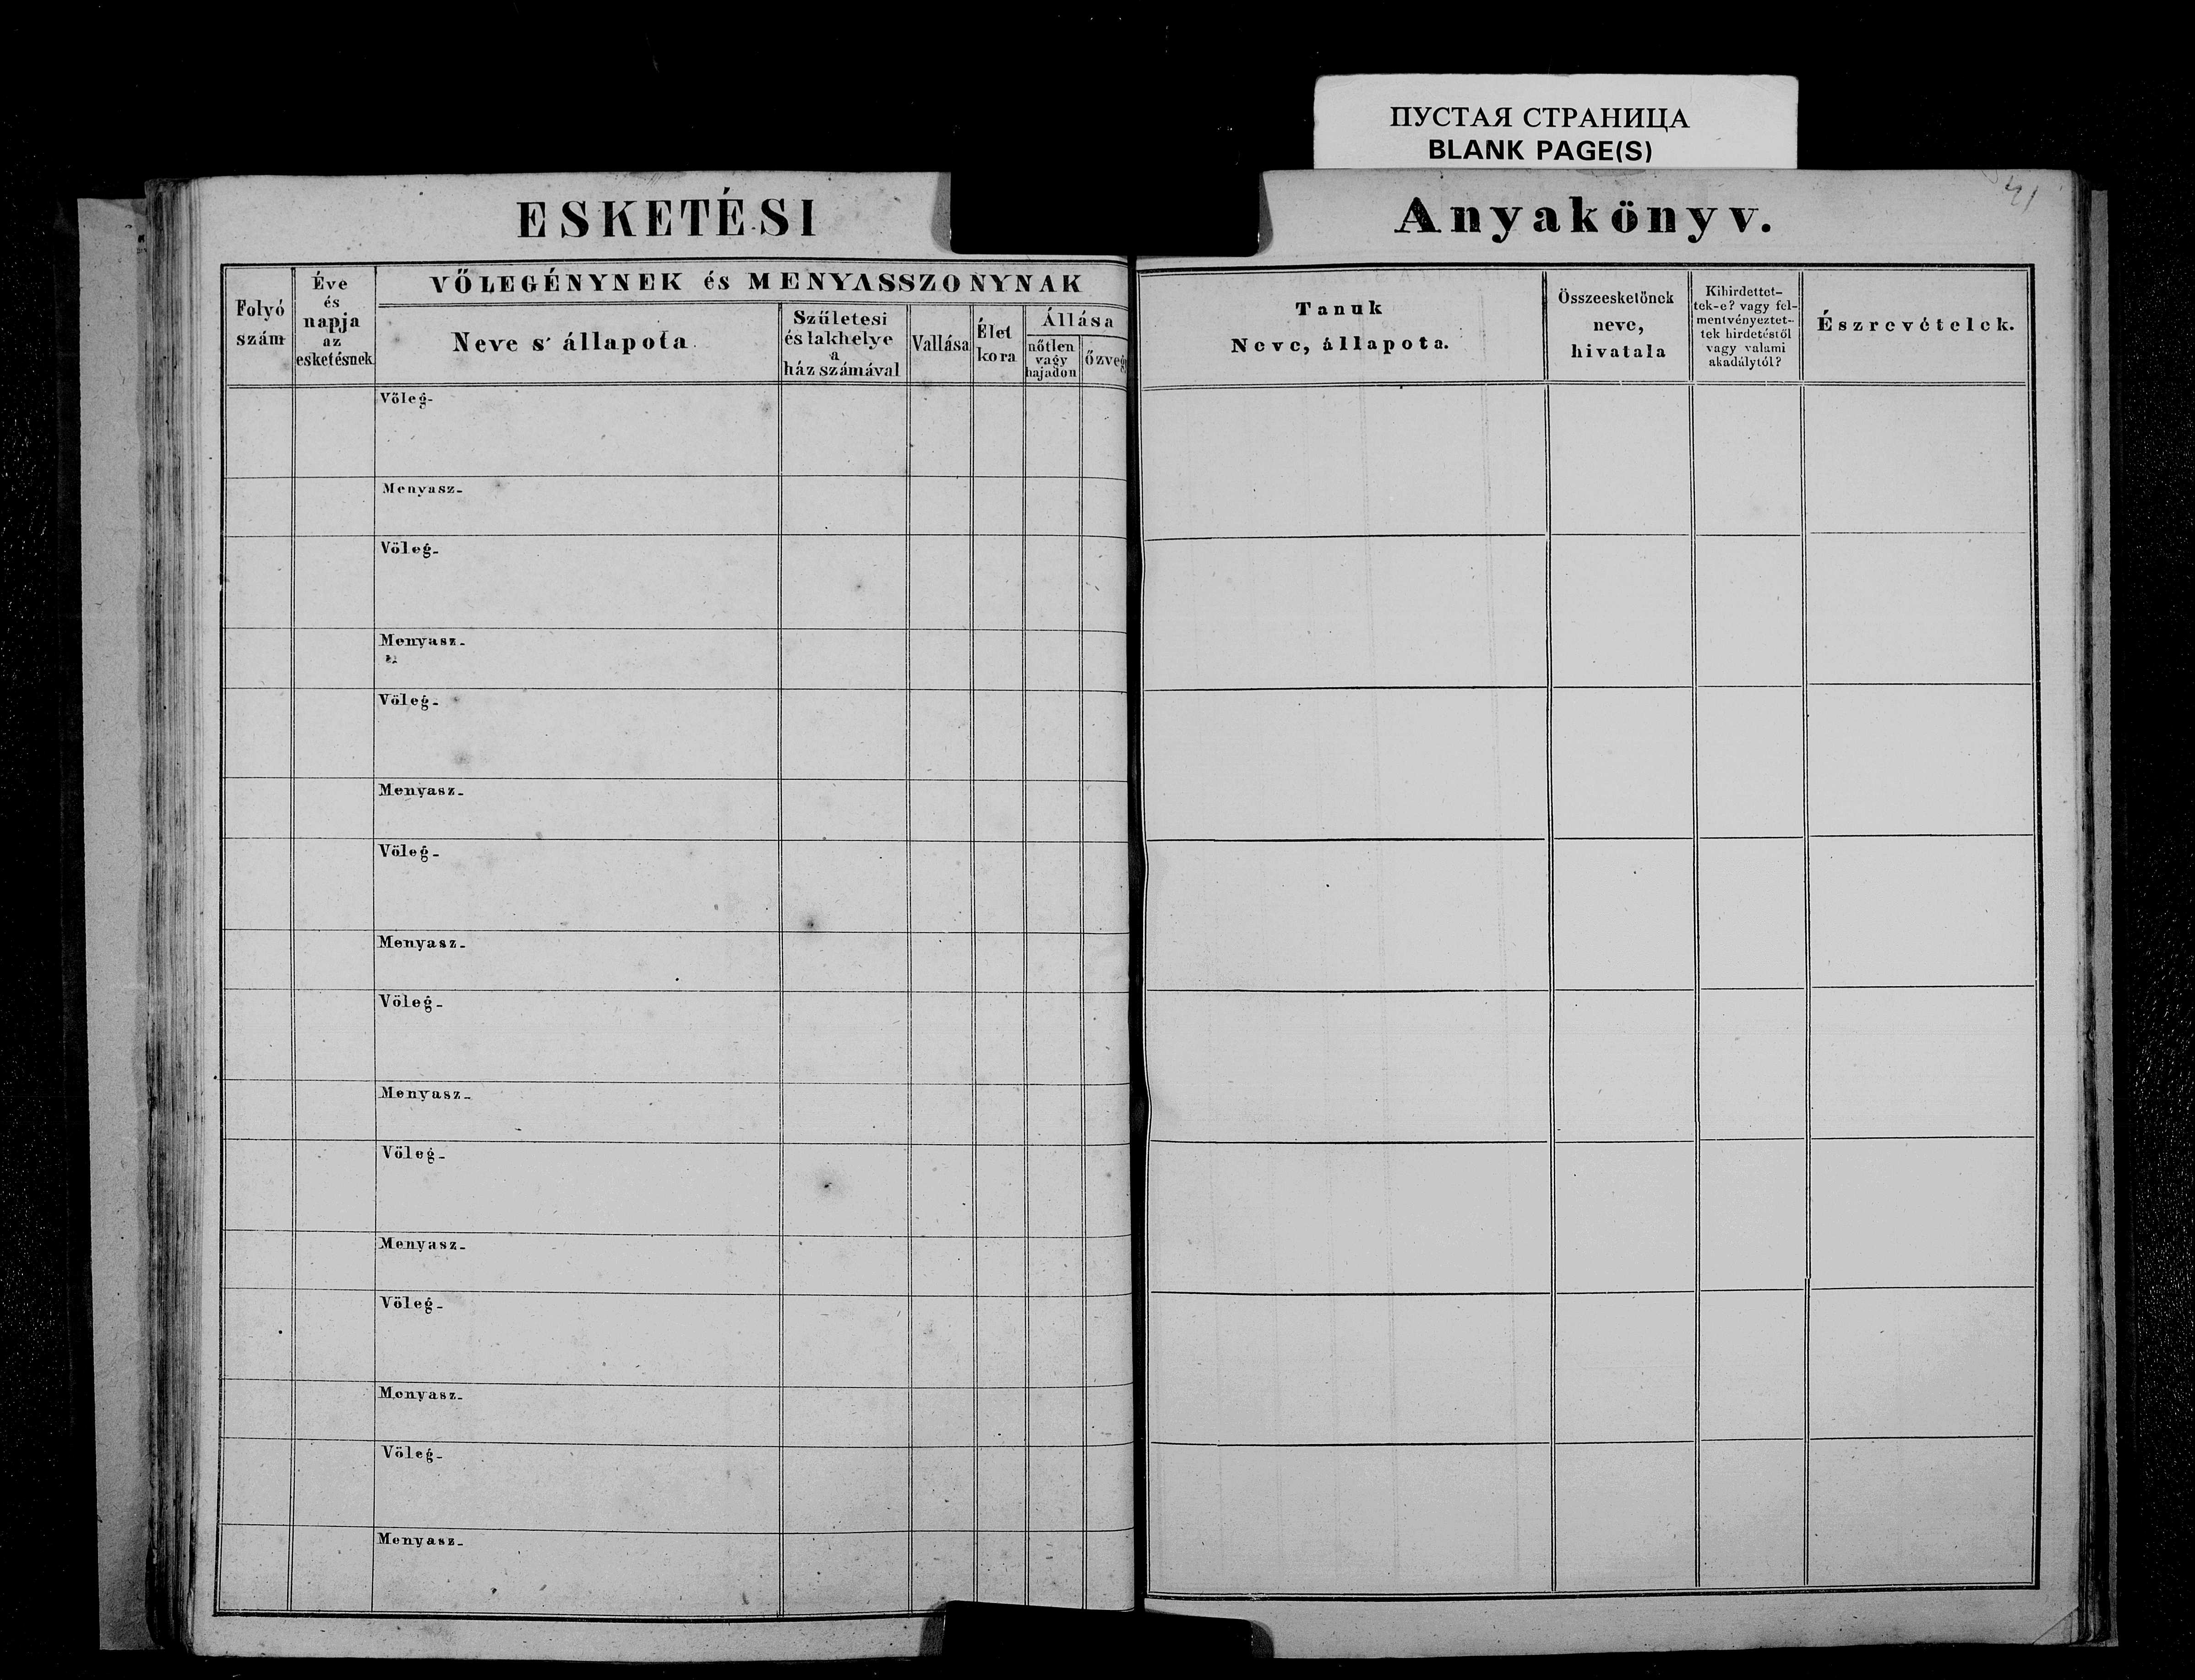 ПУСТАЯ СТРАНИЦА
BLANK PAGE(S)
41
ESKETÉSI
Anyakönyv.
Folyó
szám
Éve
és
napja
az
esketésnek
VŐLEGÉNYNEK és MENYASSZONYNAK
Neve s' állapota
Születesi
és lakhelye
a
ház számával
Vallása
Élet
kora
Állása
nőtlen
vagy
hajadon
őzveg
Tanuk
Neve, állapota.
Összeesketőnek
neve,
hivatala
Kihirdettet-
tek-e? vagy fel-
mentvényeztet-
tek hirdetéstől
vagy valami
akadálytól?
Észrevételek.
Vőleg-
Menyasz-
Vőleg-
Menyasz-
Vőleg-
Menyasz-
Vőleg-
Menyasz-
Vőleg-
Menyasz-
Vőleg-
Menyasz-
Vőleg-
Menyasz-
Vőleg-
Menyasz-